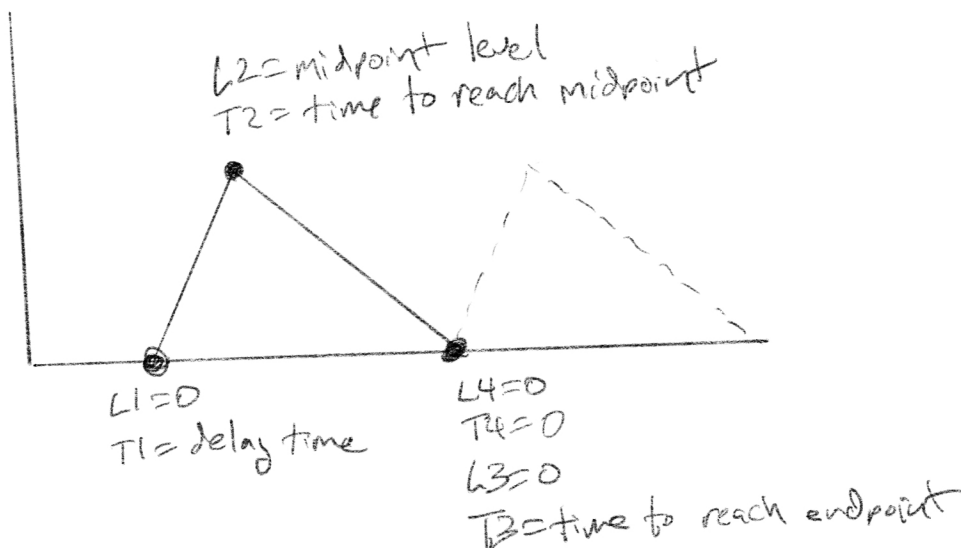 L2=midpoint level
T2=time to reach midpoint
L1=0
T1=delay time
L4=0
T4=0
L3=0
T3=time to reach endpoint